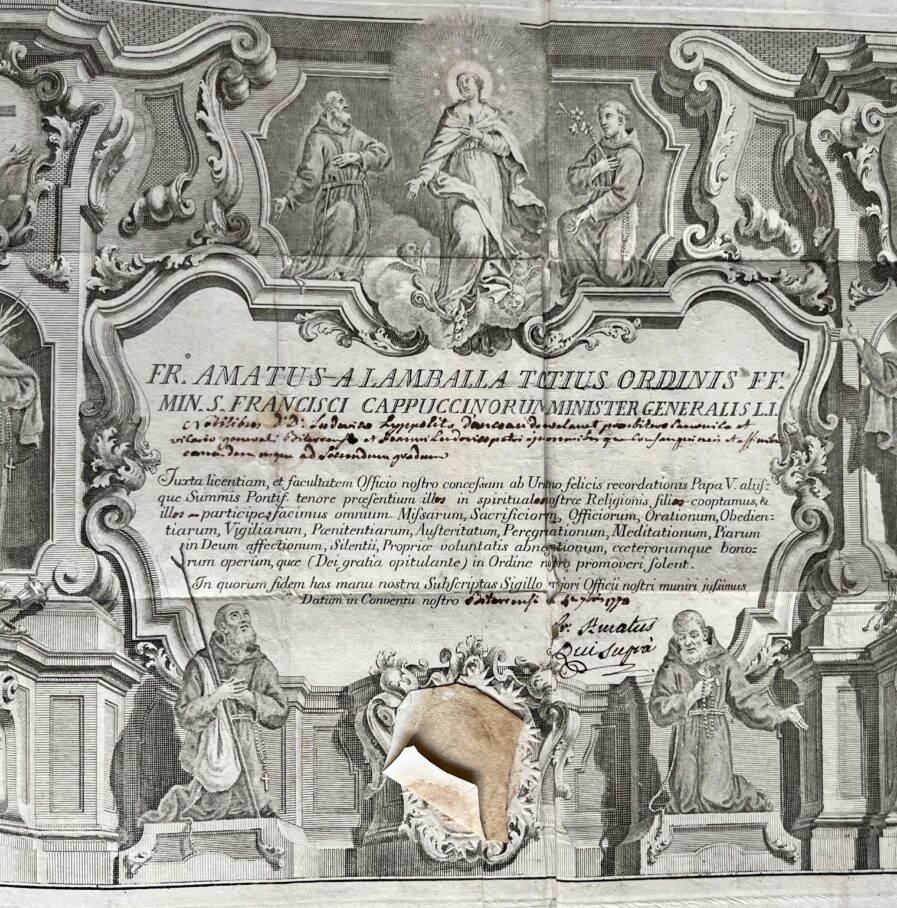 FR. AMATUS A LAMBALLA TOTIUS ORDINIS FF.
MIN. S. FRANCISCI CAPPUCCINORUM MINISTER GENERALIS L.I.
D.D. Ludovico
vicario generali Biterrensi et Joanni Ludovico patri consanguineis et affinibus
ad secundum gradum
Juxta licentiam, et facultatem Officio nostro concessam ab Urbano felicis recordationis Papa V. aliis-
que Summis Pontif. tenore præsentium illos in spirituales nostræ Religionis filios cooptamus, &
illos participes facimus omnium Missarum, Sacrificiorum, Officiorum, Orationum, Obedien-
tiarum, Vigiliarum, Pœnitentiarum, Austeritatum, Peregrinationum, Meditationum, Piarum
in Deum affectionum, Silentii, Propriæ voluntatis abnegationum, cæterorumque bono-
rum operum, quæ (Dei gratia opitulante) in Ordine nostro promoveri solent.
In quorum fidem has manu nostra Subscriptas Sigillo majori Officii nostri muniri jussimus
Datum in Conventu nostro Biterrensi 7bris 1778
fr. Amatus
Qui suprà